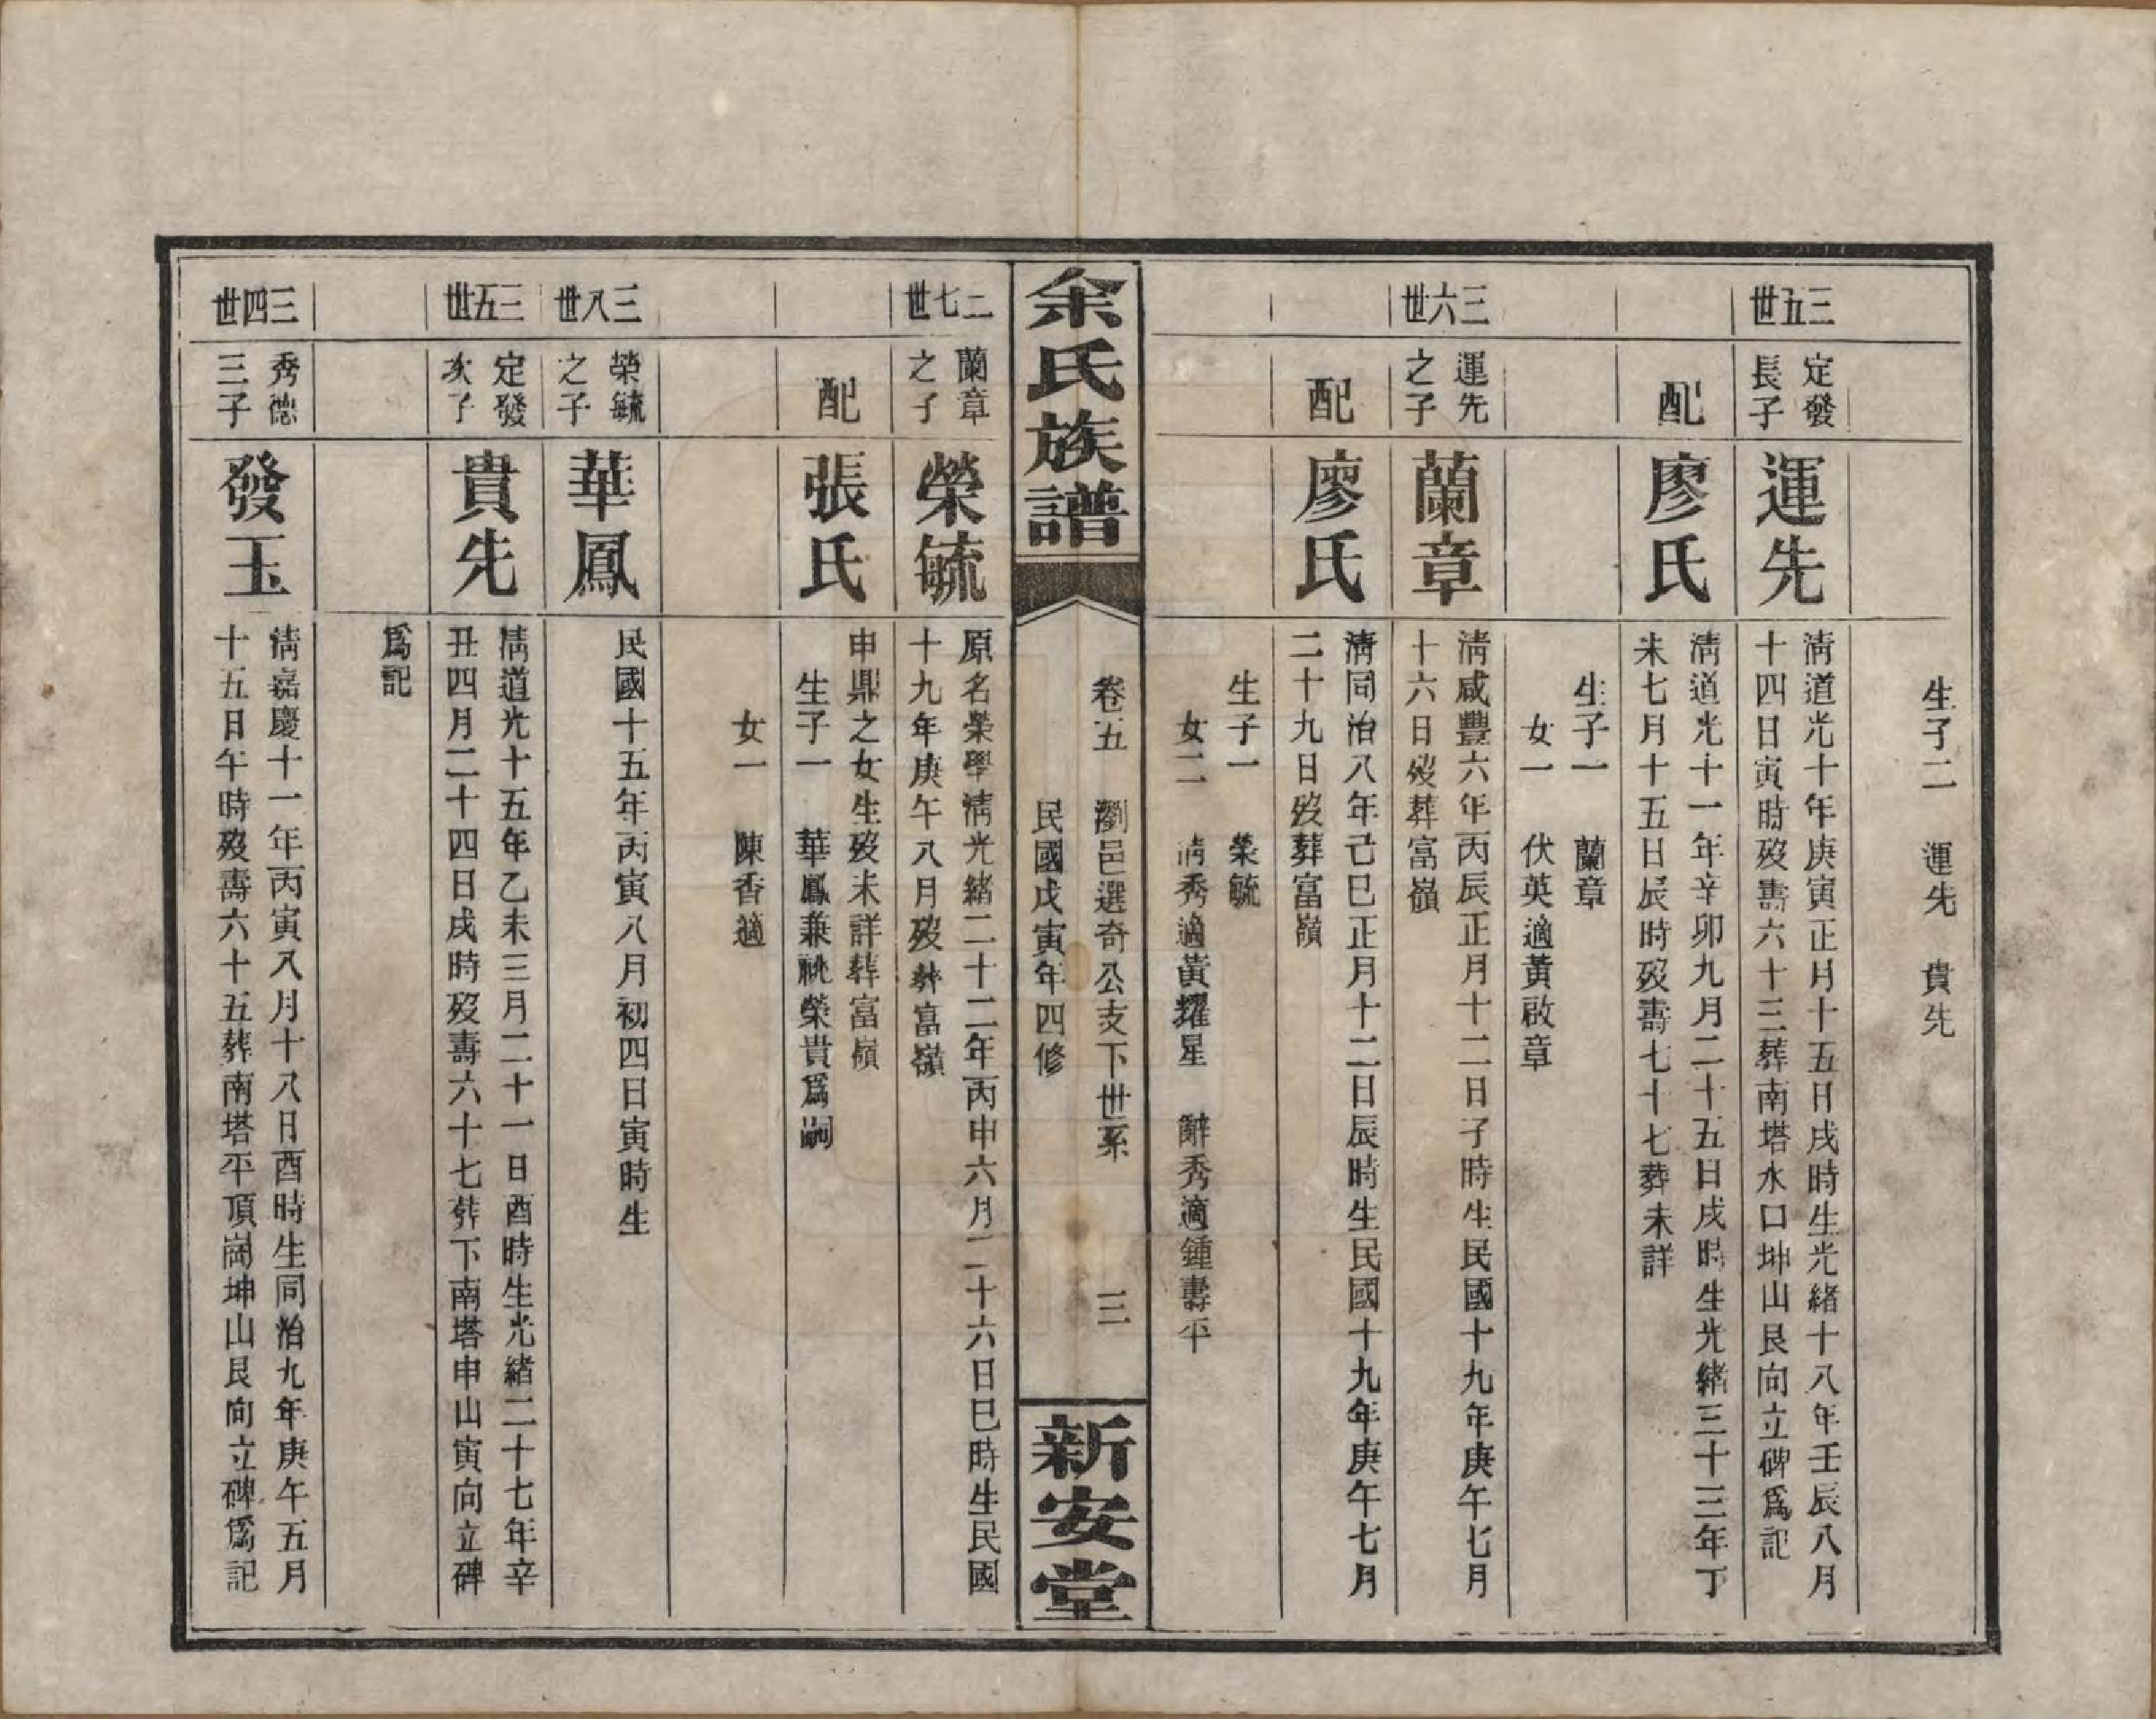 生子二　運先　貴先
三五世
定發長子
運先
清道光十年庚寅正月十五日戌時生光緒十八年壬辰八月
十四日寅時歿壽六十三葬南塔水口坤山艮向立碑爲記
配
廖氏
清道光十一年辛卯九月二十五日戌時生光緒三十三年丁
未七月十五日辰時歿壽七十七葬未詳
生子一　蘭章
女一　伏英適黃啟章
三六世
運先之子
蘭章
清咸豐六年丙辰正月十二日子時生民國十九年庚午七月
十六日歿葬富嶺
配
廖氏
清同治八年己巳正月十二日辰時生民國十九年庚午七月
二十九日歿葬富嶺
生子一　榮毓
女二　清秀適黃耀星　辭秀適鍾壽平
余氏族譜
卷五　瀏邑選奇公支下世系　三
民國戊寅年四修
新安堂
二七世
蘭章之子
榮毓
原名榮學清光緒二十二年丙申六月二十六日巳時生民國
十九年庚午八月歿葬富嶺
配
張氏
申鼎之女生歿未詳葬富嶺
生子一　華鳳兼祧榮貴爲嗣
女一　陳香適
三八世
榮毓之子
華鳳
民國十五年丙寅八月初四日寅時生
三五世
定發次子
貴先
清道光十五年乙未三月二十一日酉時生光緒二十七年辛
丑四月二十四日戌時歿壽六十七葬下南塔申山寅向立碑
爲記
三四世
秀德三子
發玉
清嘉慶十一年丙寅八月十八日酉時生同治九年庚午五月
十五日午時歿壽六十五葬南塔平頂崗坤山艮向立碑爲記